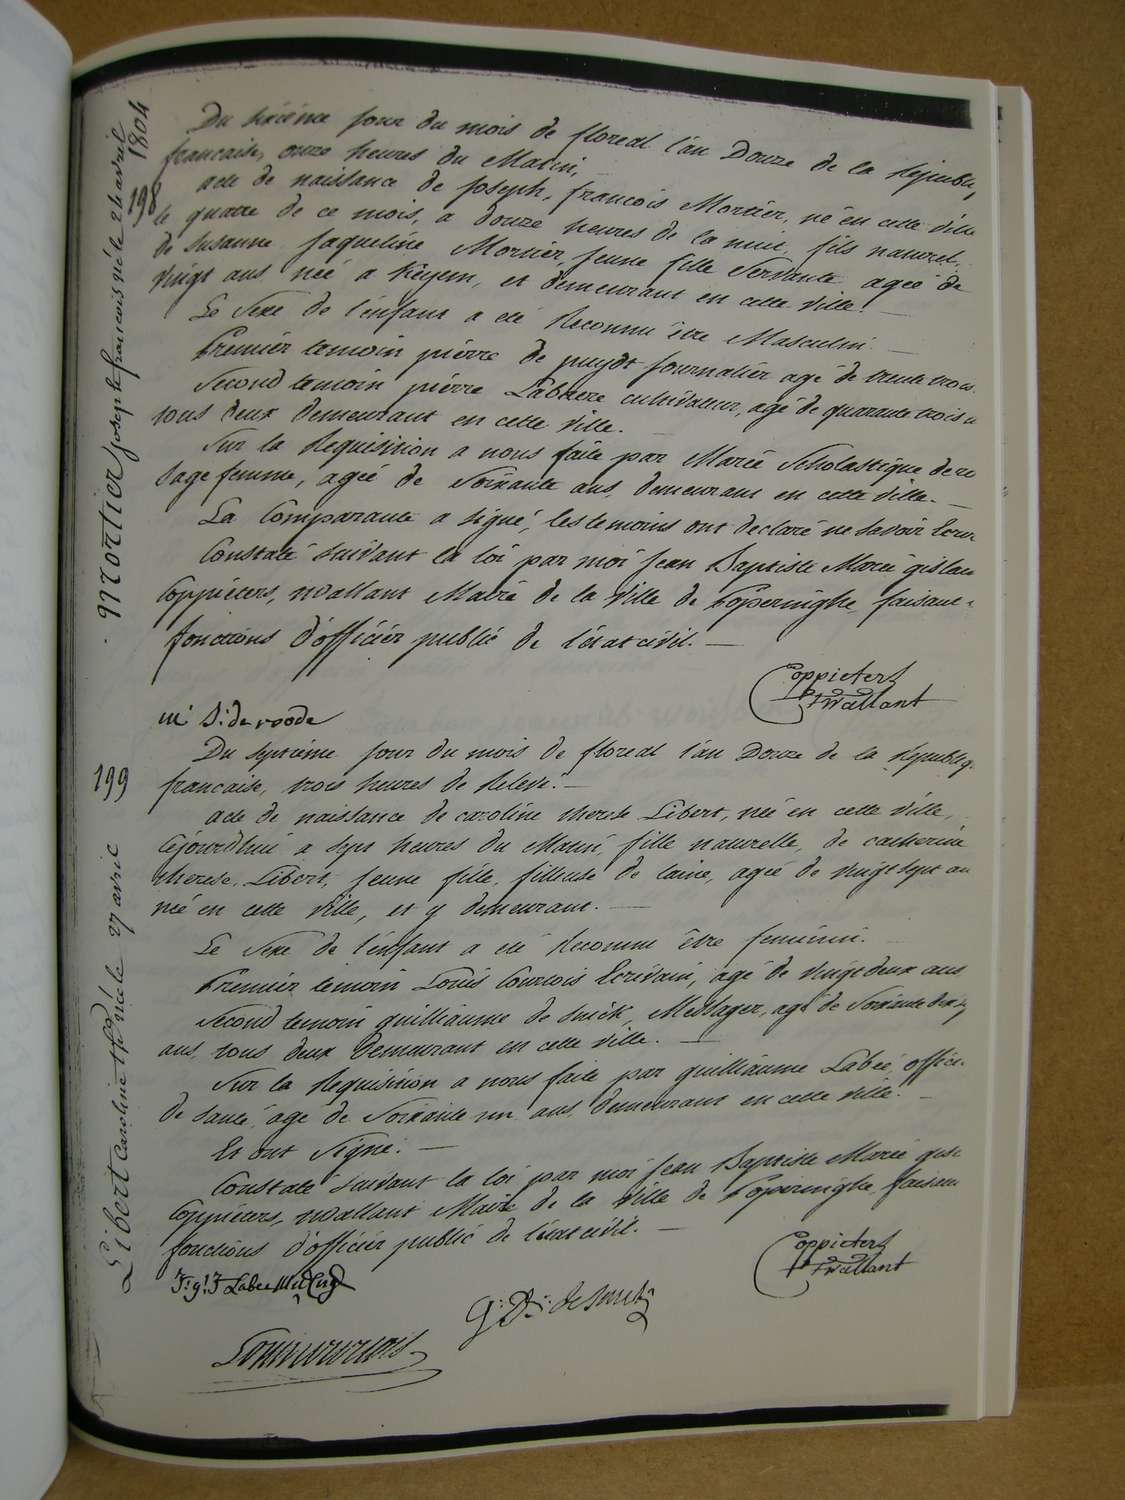 1804
198
Mortier joseph francois né le 24 avril
Du sixiéme jour du mois de floreal l'an Douze de la Republiq
francaise, onze heures du Matin,
acte de naissance de joseph, francois Mortier, né en cette ville
le quatre de ce mois, a douze heures de la nuit, fils naturel,
de susanne jaqueline Mortier, jeune fille servante agée de
vingt ans née a Keyem, et demeurant en cette ville.
Le Sexe de l'enfant a été Reconnu être Masculin.
Premier temoin pierre de puydt journalier agé de trente trois
Second temoin pierre Labaere cultivateur, agé de quarante trois
tous deux demeurant en cette ville.
Sur la Requisition a nous faite par Marie Scholastique de ro
sage femme, agée de Soixante ans, demeurant en cette ville.
La Comparante a signé, les temoins ont declaré ne savoir ecrire
Constaté suivant la loi par moi jean Baptiste Marie gislain
Coppieters, wallant Maire de la Ville de Poperinghe, faisant
fonctions d'officier public de l'état civil.
Coppieters
wallant
m: S: de roode
199
Libert Caroline thé né le 27 avril
Du septiéme jour du mois de floreal l'an Douze de la Republiq
francaise, trois heures de Relevé.
acte de naissance de caroline therese Libert, née en cette ville,
cejourdhui a sept heures du Matin, fille naturelle, de catherine
therese, Libert, jeune fille, fileuse de laine, agée de vingt sept an
née en cette ville, et y demeurant.
Le Sexe de l'enfant a été Reconnu être feminin.
Premier temoin Louis Courtois Ecrivain, agé de vingt deux ans
Second temoin guilliaume de snick, Messager, agé de Soixante dix
ans, tous deux demeurant en cette ville.
Sur la Requisition a nous faite par guilliaume Labée, offici
de santé, agé de Soixante un ans, demeurant en cette ville.
Et ont Signé.
Constaté suivant la loi par moi jean Baptiste Marie gisl
Coppieters, wallant Maire de la Ville de Poperinghe, faisan
fonctions d'officier public de l'état civil.
Coppieters
wallant
Labee